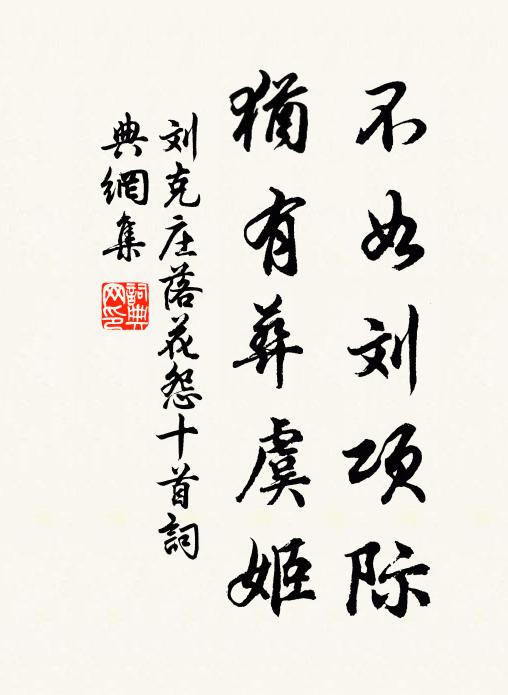 不如刘项际
犹有葬虞姬
刘克庄落花怨十首詞
典網集
詞典网印